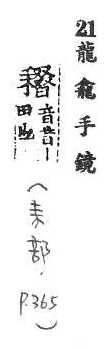 21龍龕手鏡
音昔—
田也
(耒部, P.365)